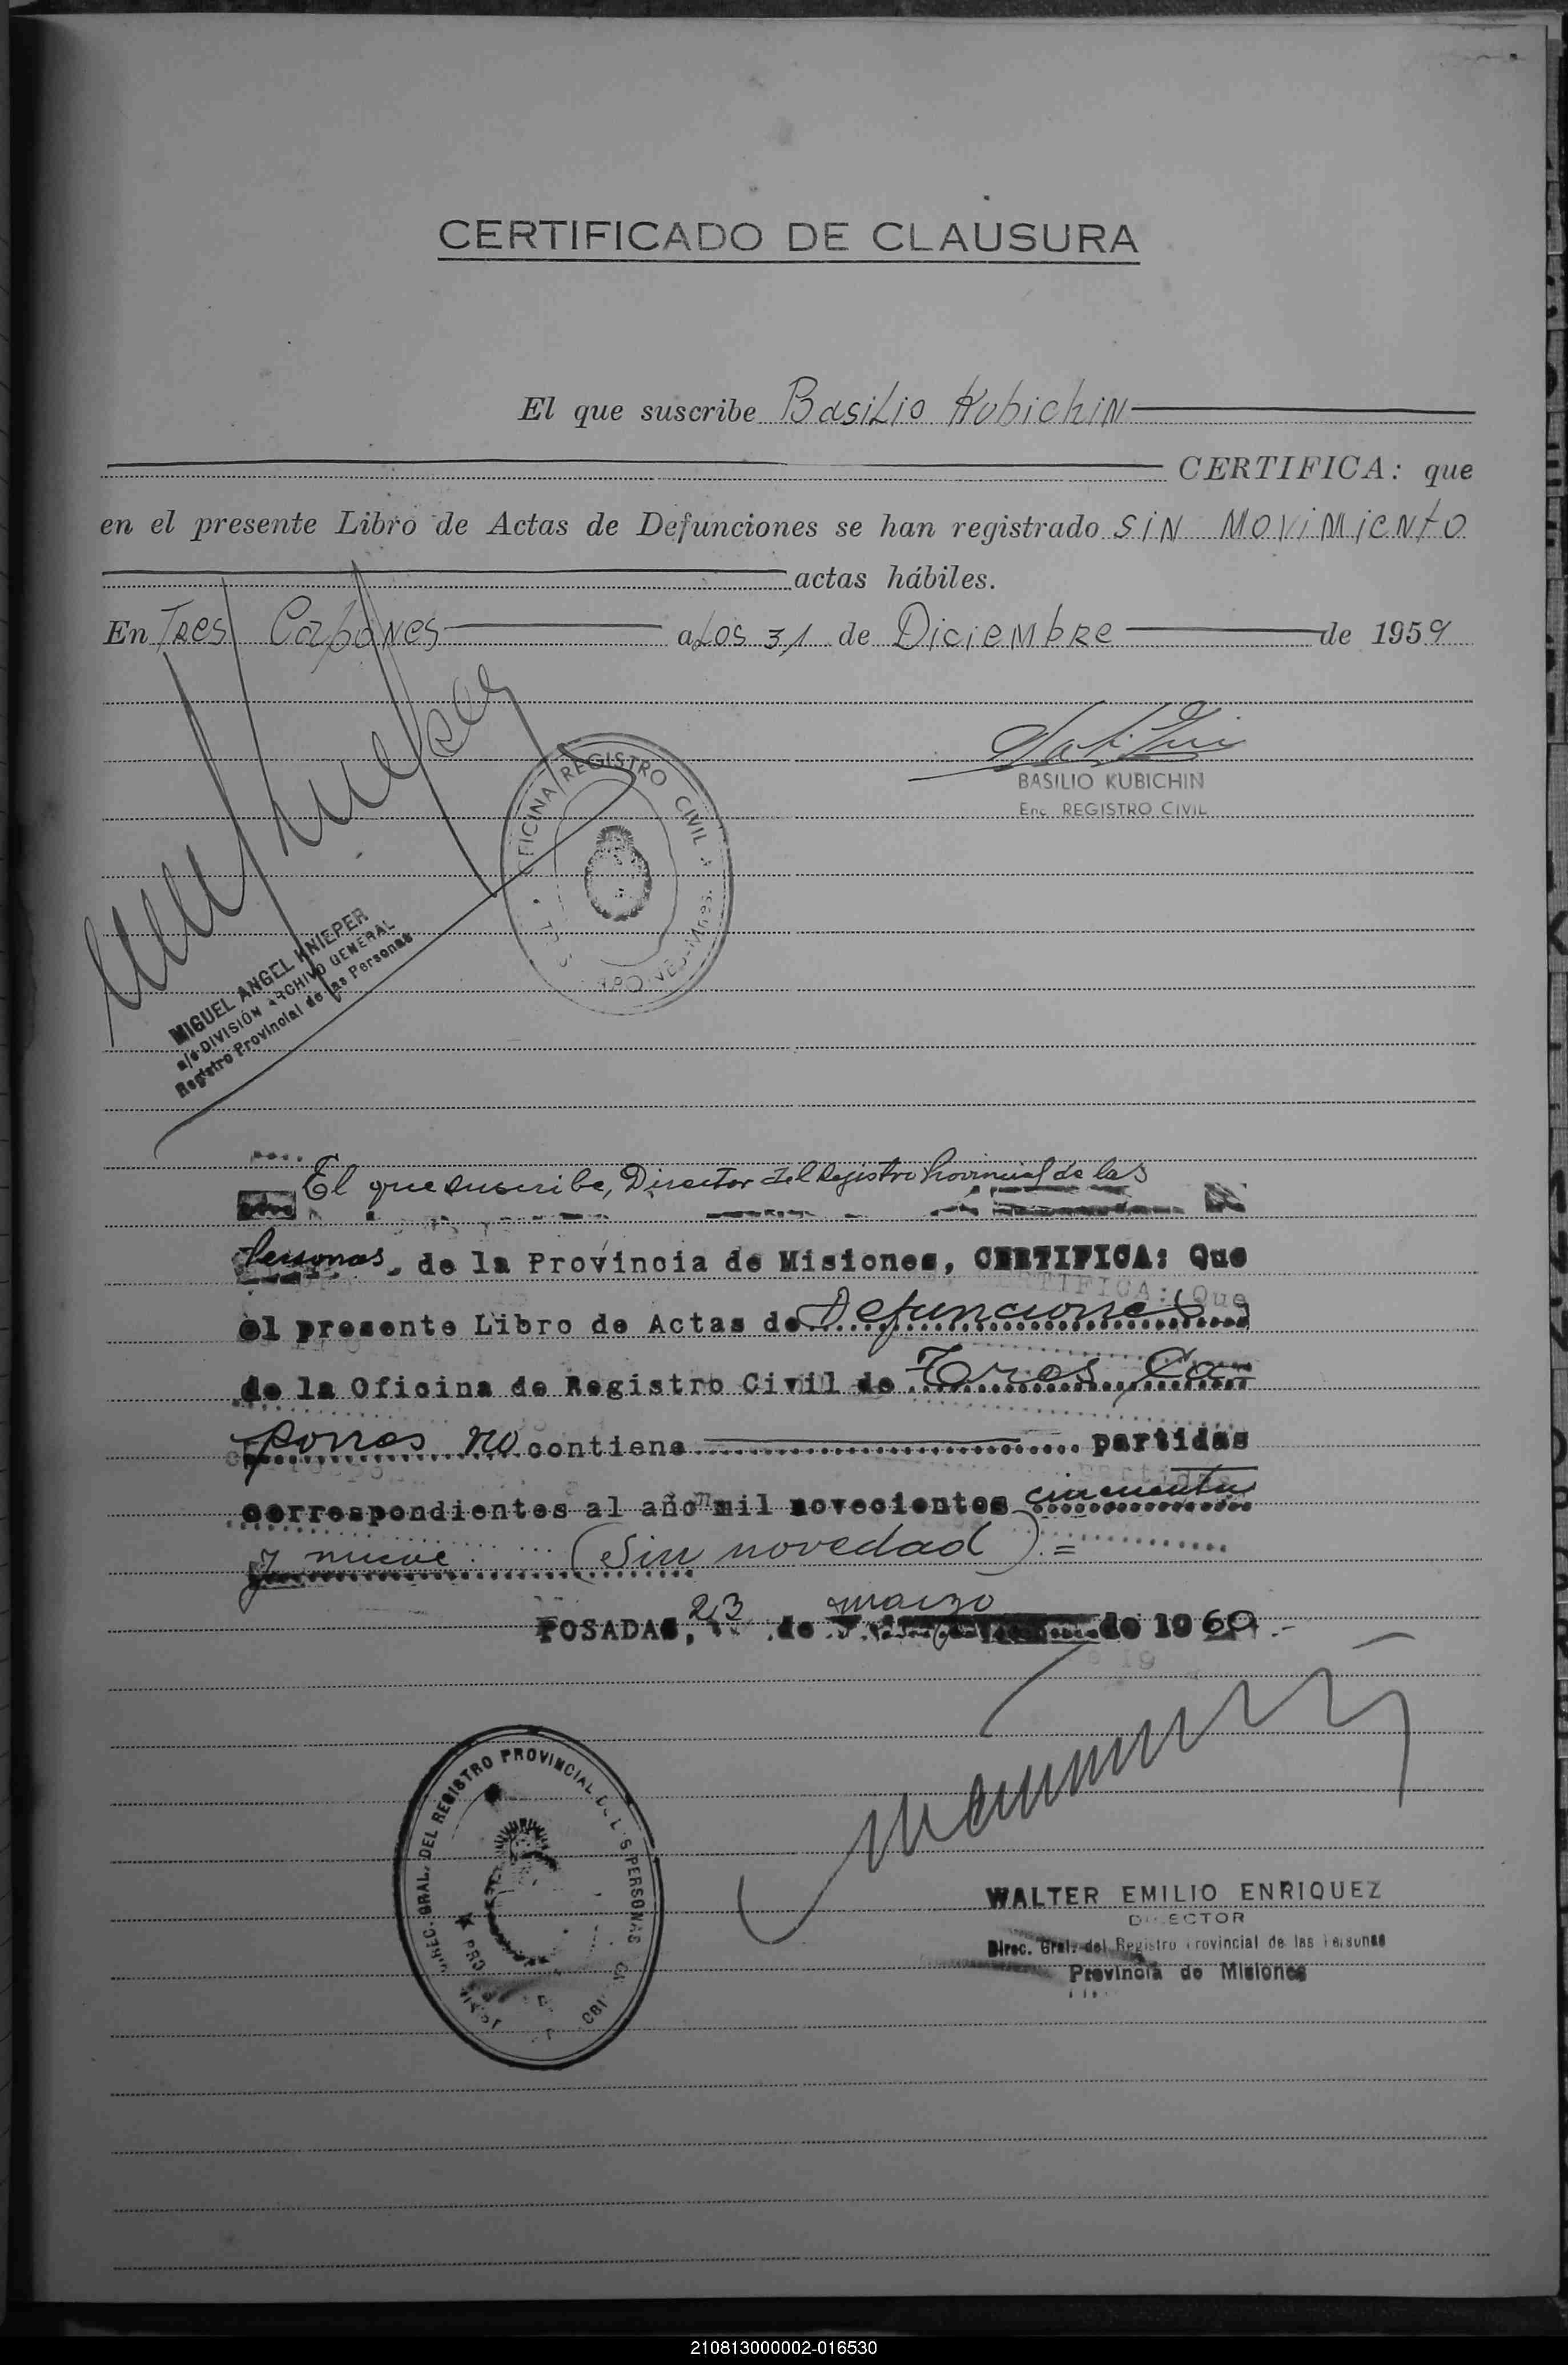 CERTIFICADO DE CLAUSURA
El que suscribe Basilio Kubichin
CERTIFICA: que
en el presente Libro de Actas de Defunciones se han registrado SIN MOVIMIENTO
actas hábiles.
En Tres Capones a Los 31 de Diciembre de 1959
BASILIO KUBICHIN
Enc. REGISTRO CIVIL
OFICINA REGISTRO CIVIL
MIGUEL ANGEL KNIEPER
a/c DIVISIÓN ARCHIVO GENERAL
Registro Provincial de las Personas
El que suscribe, Director del Registro Provincial de las
Personas, de la Provincia de Misiones, CERTIFICA: Que
el presente Libro de Actas de Defunciones
de la Oficina de Registro Civil de Tres Ca
pones no contiene partidas
correspondientes al año mil novecientos cincuenta
y nueve (Sin novedad).=
POSADAS, 23 de marzo de 1960.-
DIREC. GRAL. DEL REGISTRO PROVINCIAL DE LAS PERSONAS
WALTER EMILIO ENRIQUEZ
DIRECTOR
Direc. Gral. del Registro Provincial de las Personas
Provincia de Misiones
210813000002-016530